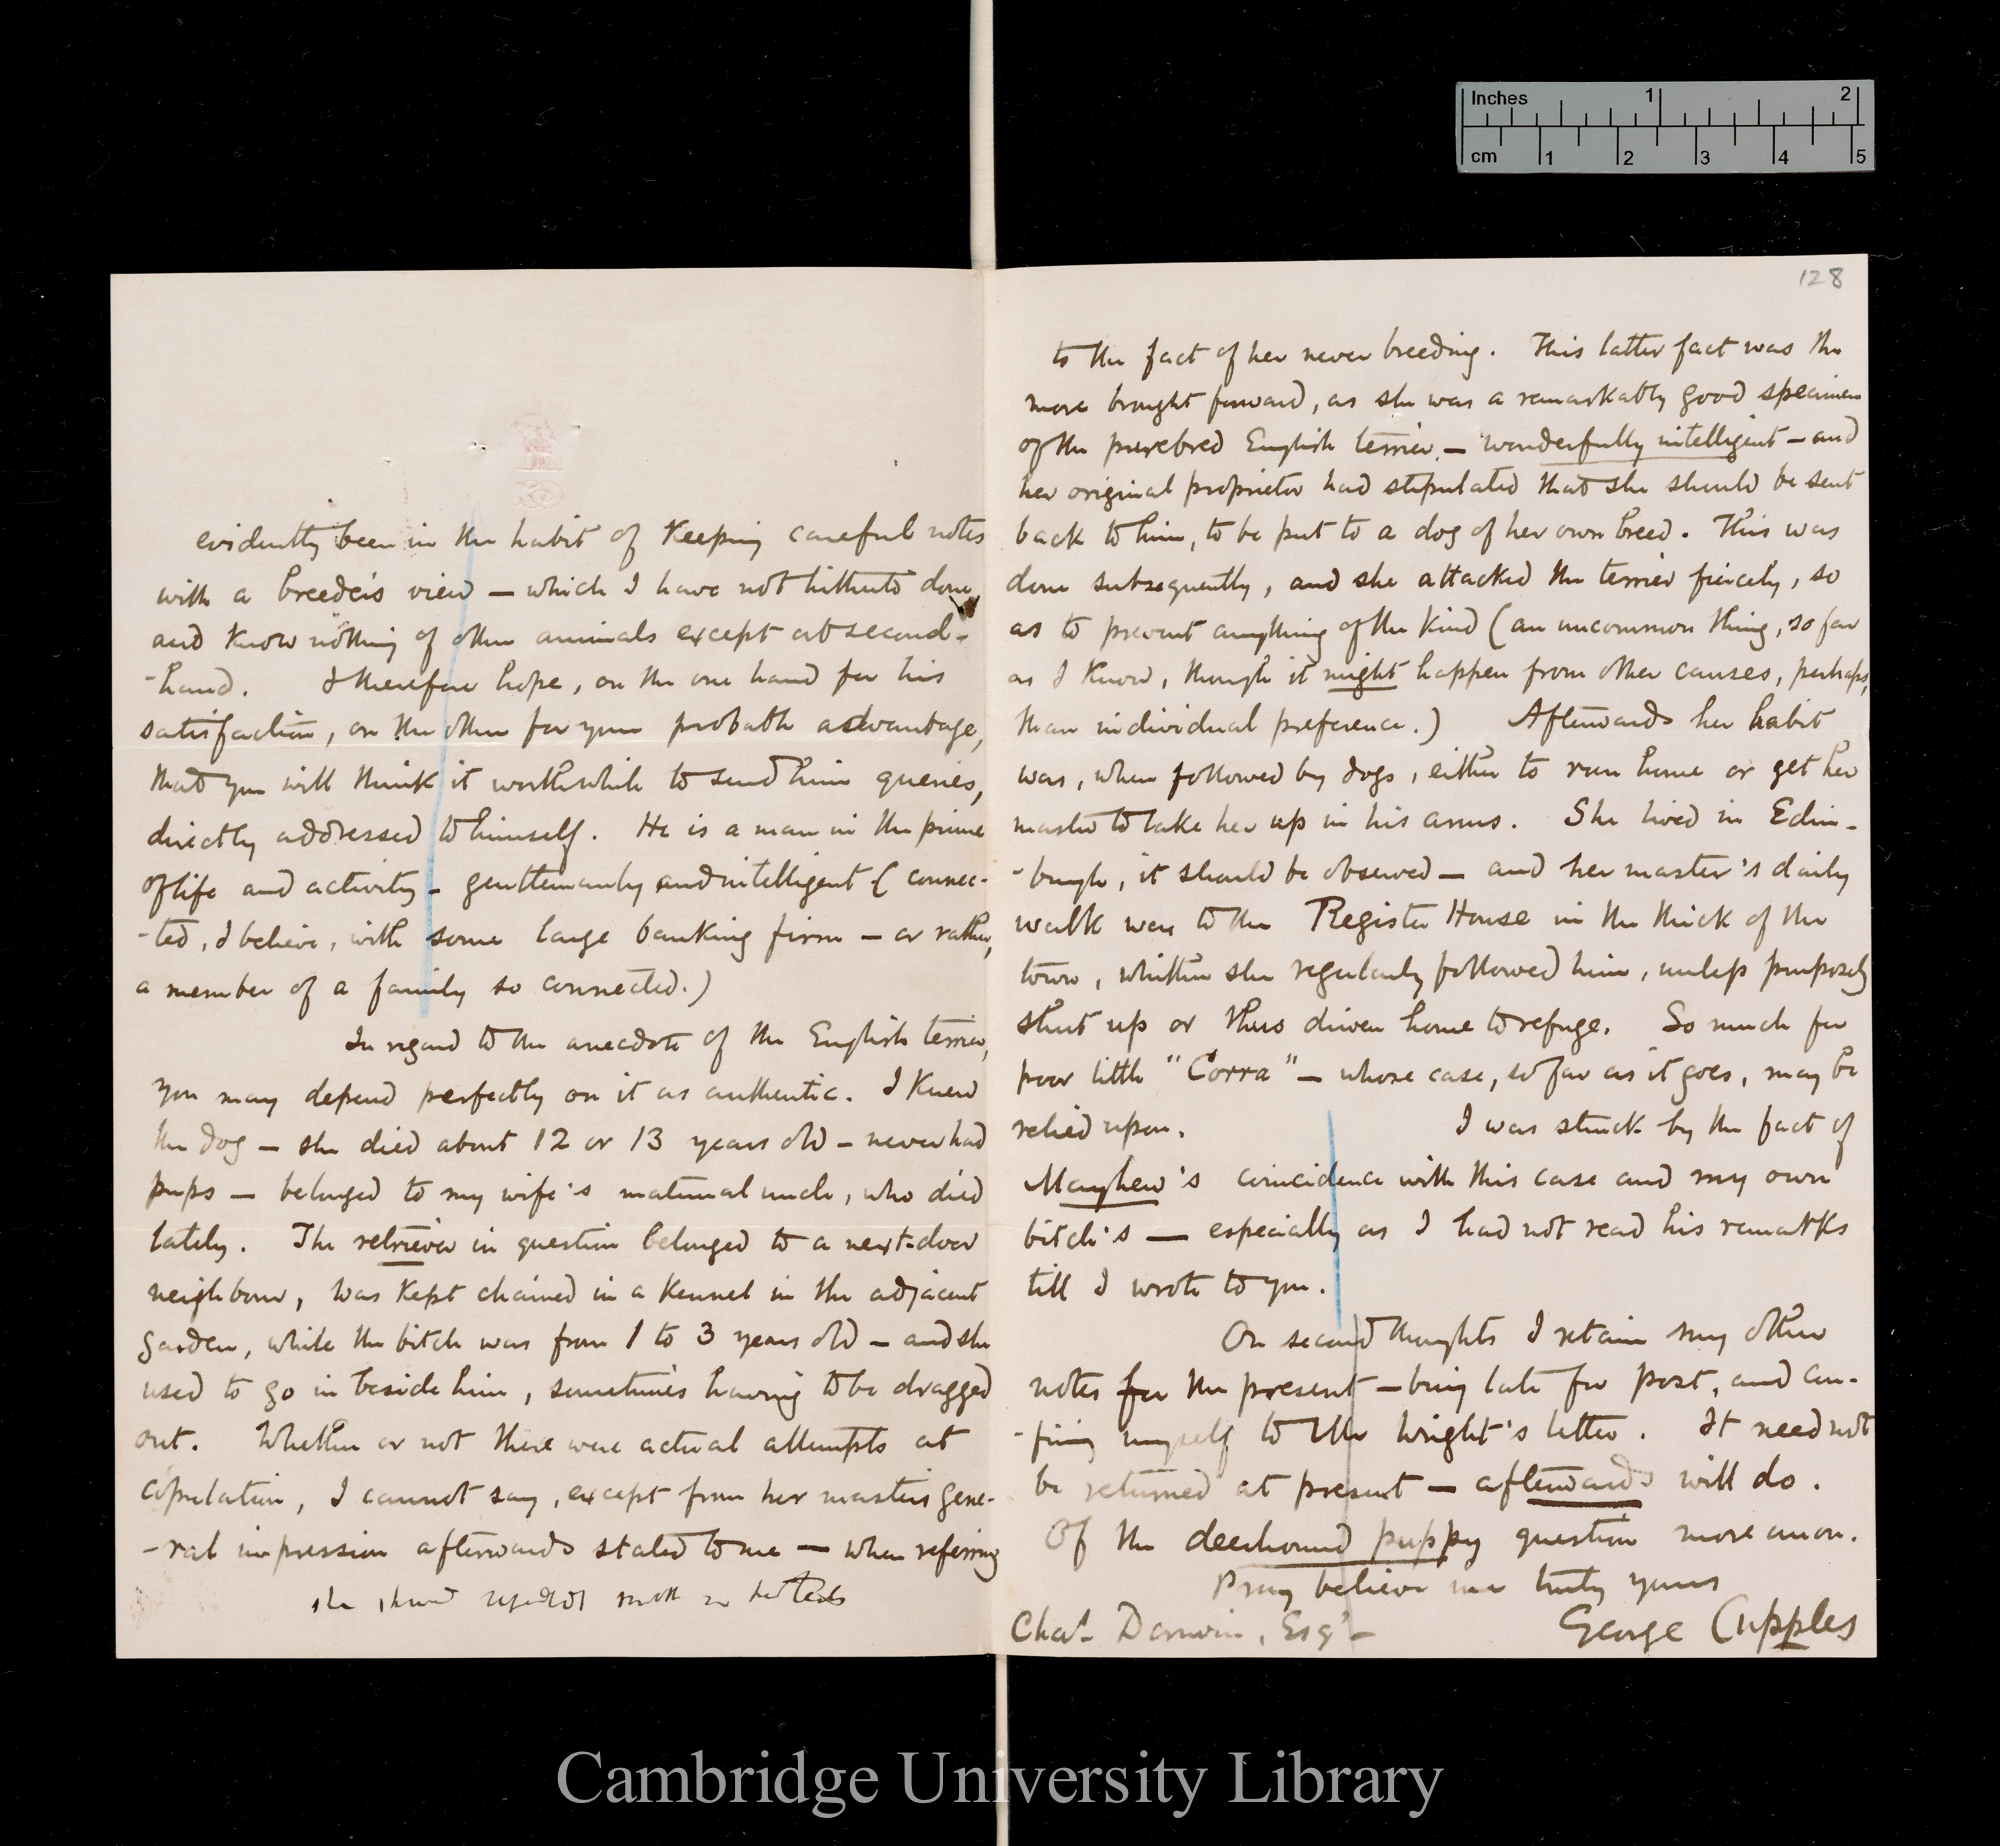 Inches 1 2
cm 1 2 3 4 5
evidently been in the habit of keeping careful notes
with a breeder's view — which I have not hitherto done,
and know nothing of other animals except at second-
-hand. I therefore hope, on the one hand for his
satisfaction, on the other for your probable advantage,
that you will think it worth while to send him queries,
directly addressed to himself. He is a man in the prime
of life and activity — gentlemanly and intelligent (connec-
-ted, I believe, with some large banking firm — or rather,
a member of a family so connected.)
In regard to the anecdote of the English terrier,
you may depend perfectly on it as authentic. I knew
the dog — she died about 12 or 13 years old — never had
pups — belonged to my wife's maternal uncle, who died
lately. The retriever in question belonged to a next-door
neighbour, was kept chained in a kennel in the adjacent
garden, while the bitch was from 1 to 3 years old — and she
used to go in beside him, sometimes having to be dragged
out. Whether or not there were actual attempts at
copulation, I cannot say, except from her master's gene-
-ral impression afterwards stated to me — when referring
128
to the fact of her never breeding. This latter fact was the
more brought forward, as she was a remarkably good specimen
of the purebred English terrier — wonderfully intelligent — and
her original proprietor had stipulated that she should be sent
back to him, to be put to a dog of her own breed. This was
done subsequently, and she attacked the terrier fiercely, so
as to prevent anything of the kind (an uncommon thing, so far
as I know, though it might happen from other causes, perhaps,
than individual preference.) Afterwards her habit
was, when followed by dogs, either to run home or get her
master to take her up in his arms. She lived in Edin-
-burgh, it should be observed — and her master's daily
walk was to the Register House in the thick of the
town, whither she regularly followed him, unless purposely
shut up or thus driven home to refuge. So much for
poor little "Corra" — whose case, so far as it goes, may be
relied upon. I was struck by the fact of
Mayhew's coincidence with this case and my own
bitch's — especially as I had not read his remarks
till I wrote to you.
On second thoughts I retain my other
notes for the present — being late for post, and con-
-fining myself to Mr Wright's letter. It need not
be returned at present — afterwards will do.
Of the deerhound puppy question more anon.
Pray believe me truly yours
George Cupples
Chas. Darwin, Esqr —
Cambridge University Library